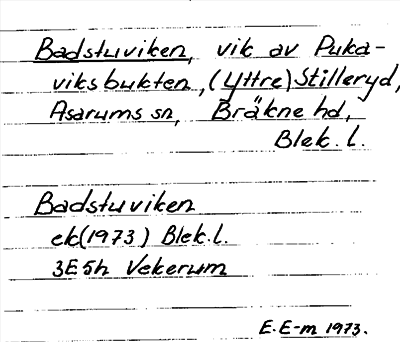 Badstuviken, vik av Puka-
viksbukten, (Yttre) Stilleryd,
Asarums sn, Bräkne hd,
Blek. l.
Badstuviken
ek(1973) Blek. l.
3E5h Vekerum
E. E-m 1973.